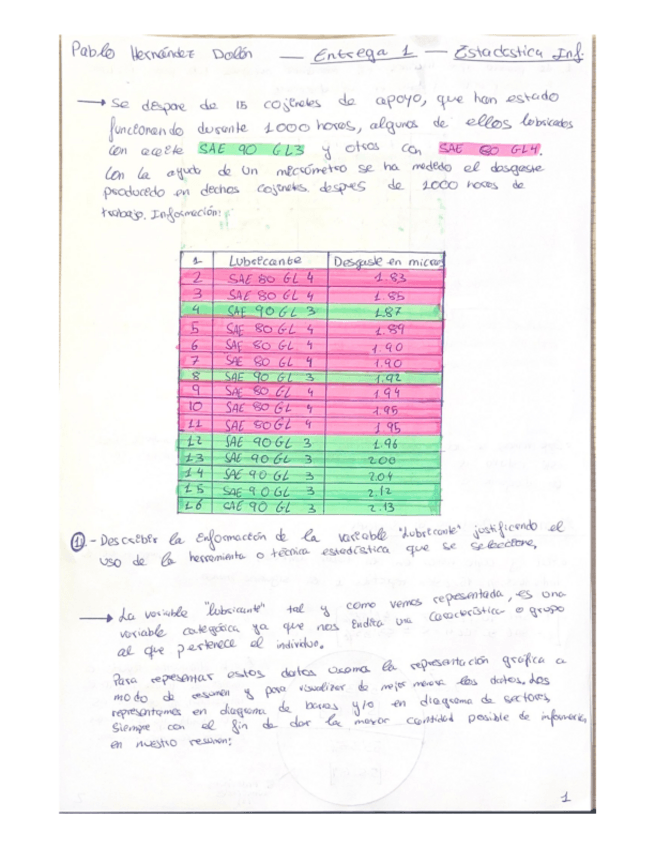 Pablo Hernández Dolón — Entrega 1 — Estadística Inf.
→ Se dispone de 15 cojinetes de apoyo, que han estado
funcionando durante 1000 horas, algunos de ellos lubricados
con aceite SAE 90 GL3 y otros con SAE 80 GL4.
Con la ayuda de un micrómetro se ha medido el desgaste
producido en dichos cojinetes despues de 1000 horas de
trabajo. Información:
1 Lubricante Desgaste en micras
2 SAE 80 GL 4 1.83
3 SAE 80 GL 4 1.85
4 SAE 90 GL 3 1.87
5 SAE 80 GL 4 1.89
6 SAE 80 GL 4 1.90
7 SAE 80 GL 4 1.90
8 SAE 90 GL 3 1.92
9 SAE 80 GL 4 1.94
10 SAE 80 GL 4 1.95
11 SAE 80 GL 4 1.95
12 SAE 90 GL 3 1.96
13 SAE 90 GL 3 2.00
14 SAE 90 GL 3 2.04
15 SAE 90 GL 3 2.12
16 SAE 90 GL 3 2.13
①.- Describir la información de la variable "Lubricante" justificando el
uso de la herramienta o técnica estadística que se seleccione.
→ La variable "lubricante" tal y como vemos representada, es una
variable categórica ya que nos indica una característica o grupo
al que pertenece el individuo.
Para representar estos datos usamos la representación gráfica a
modo de resumen y para visualizar de mejor manera los datos. Los
representamos en diagrama de barras y/o en diagrama de sectores,
siempre con el fin de dar la mayor cantidad posible de información
en nuestro resumen:
1